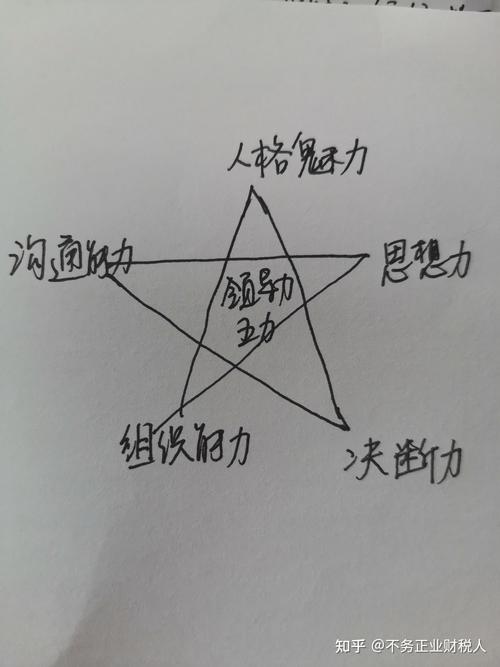 人格魅力
沟通能力
思想力
领导力
五力
组织能力
决断力
知乎 @不务正业财税人